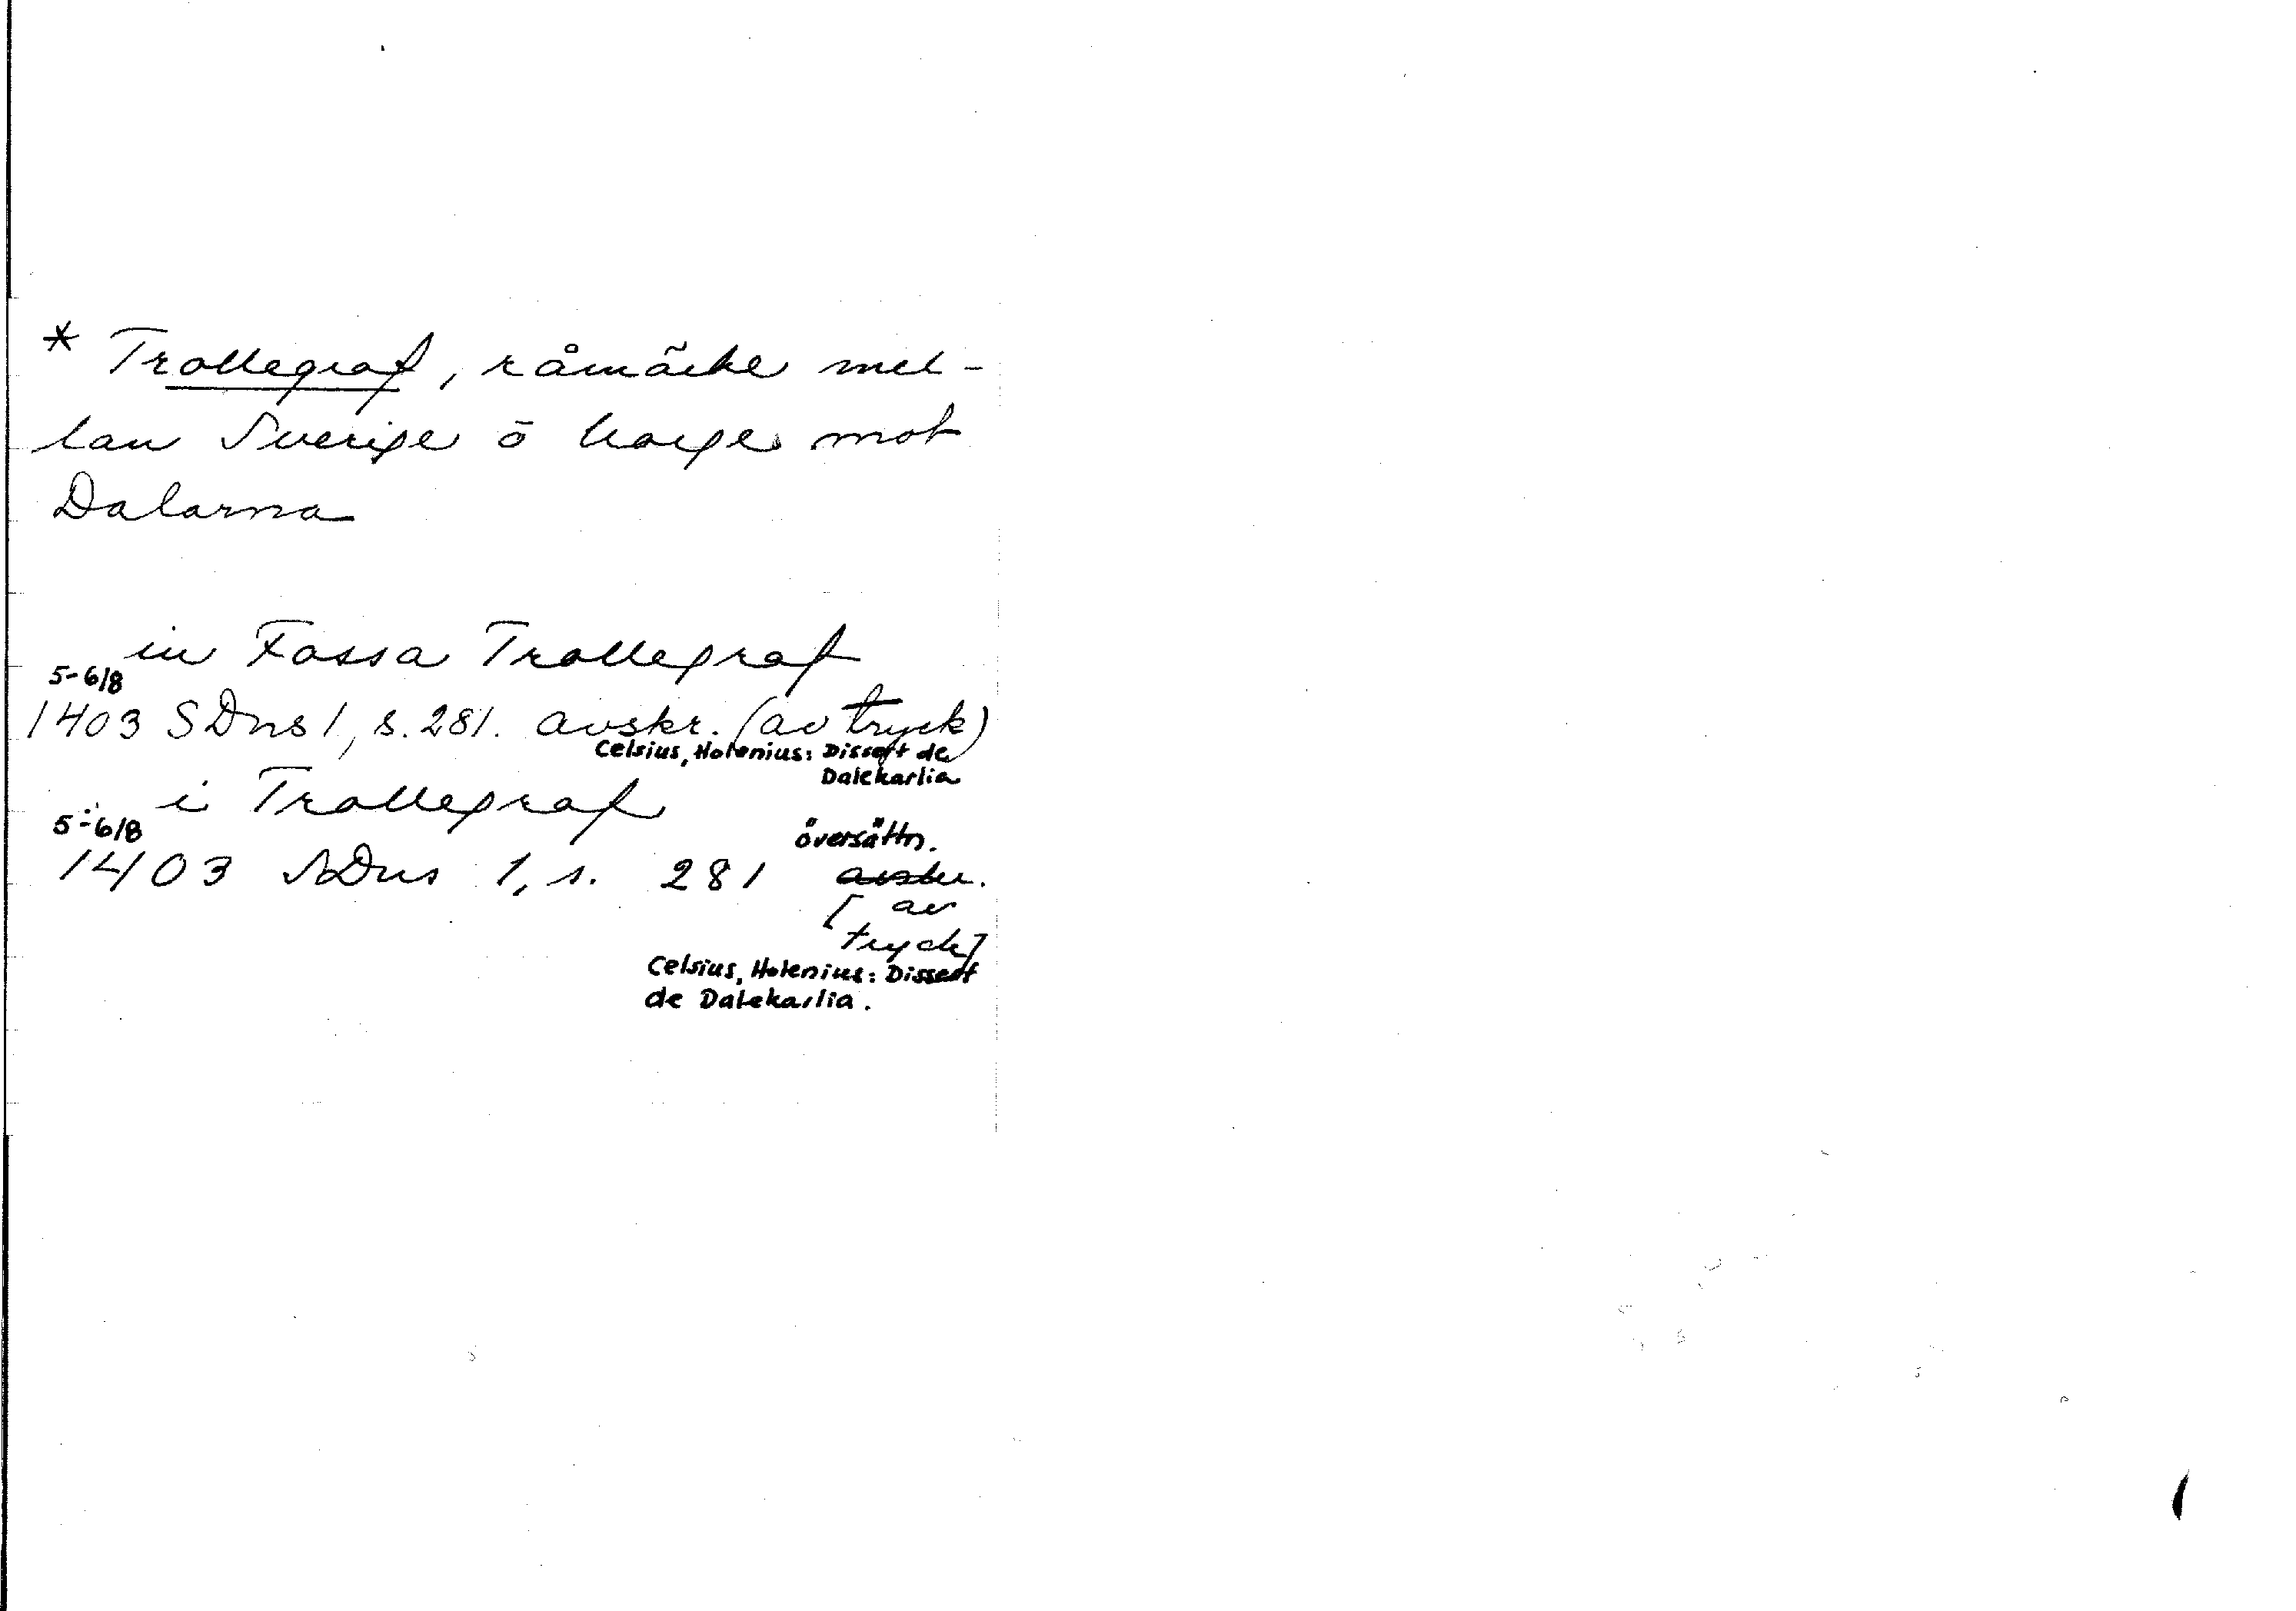 * Trollegraf, råmärke mel-
lan Sverige o Norge mot
Dalarna
in Fossa Trollegraf
5-6/8
1403 SDns 1, s. 281. avskr. (av tryck)
Celsius, Holenius: Dissert de
Dalekarlia
i Trollegraf
5-6/8
översättn.
1403 SDns 1, s. 281 avskr.
[av
tryck]
Celsius, Holenius: Dissert
de Dalekarlia.